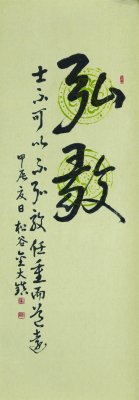 弘毅
士不可以不弘毅任重而道遠
甲辰亥日 松谷 金大鎮